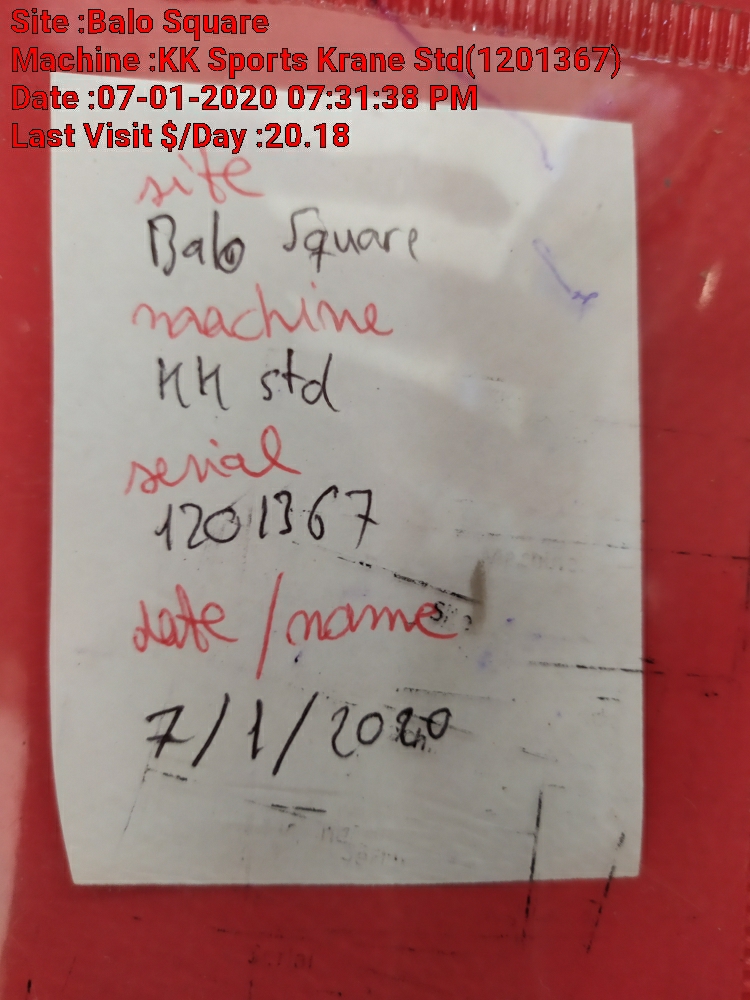 Site :Balo Square
Machine :KK Sports Krane Std(1201367)
Date :07-01-2020 07:31:38 PM
Last Visit $/Day :20.18
site
Balo Square
maachine
KK std
serial
1201367
date/name
7/1/2020